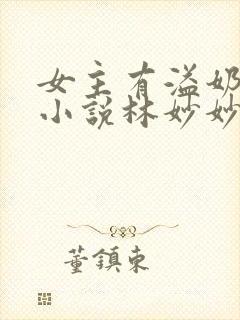 女主有溢奶
小說林妙妙
董鎮東